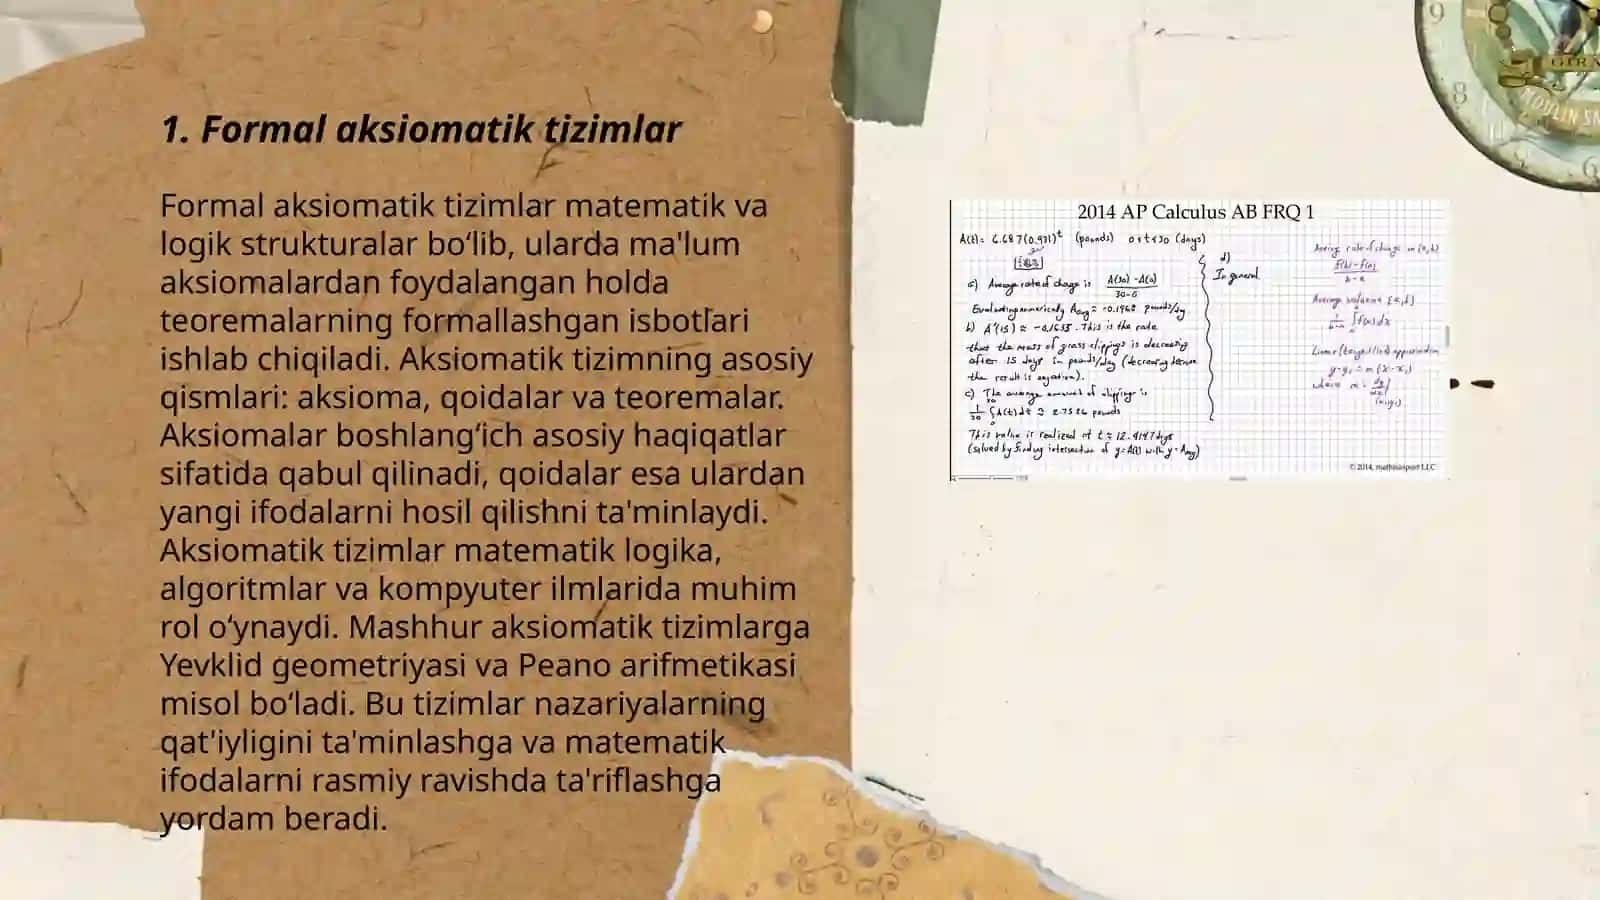 1. Formal aksiomatik tizimlar
Formal aksiomatik tizimlar matematik va
logik strukturalar bo‘lib, ularda ma'lum
aksiomalardan foydalangan holda
teoremalarning formallashgan isbotlari
ishlab chiqiladi. Aksiomatik tizimning asosiy
qismlari: aksioma, qoidalar va teoremalar.
Aksiomalar boshlang‘ich asosiy haqiqatlar
sifatida qabul qilinadi, qoidalar esa ulardan
yangi ifodalarni hosil qilishni ta'minlaydi.
Aksiomatik tizimlar matematik logika,
algoritmlar va kompyuter ilmlarida muhim
rol o‘ynaydi. Mashhur aksiomatik tizimlarga
Yevklid geometriyasi va Peano arifmetikasi
misol bo‘ladi. Bu tizimlar nazariyalarning
qat'iyligini ta'minlashga va matematik
ifodalarni rasmiy ravishda ta'riflashga
yordam beradi.
2014 AP Calculus AB FRQ 1
A(t) = 6.687(0.931)^t (pounds) 0≤t≤30 (days)
a) Average rate of change is A(30)-A(0)
30-0
Evaluating numerically Aavg ≈ -0.1968 pounds/day
b) A'(15) ≈ -0.1635. This is the rate
that the mass of grass clippings is decreasing
after 15 days in pounds/day (decreasing because
the result is negative).
c) The average amount of clippings is
A(t)dt ≈ 2.7526 pounds
This value is realized at t ≈ 12.4147 days
(solved by finding intersection of y=A(t) with y=Aavg)
d)
In general
Average rate of change on [a,b]
f(b)-f(a)
b-a
Average value on [a,b]
f(x)dx
Linear (tangent line) approximation
y-y₁ = m(x-x₁)
where m = dy
dx
(x₁,y₁)
© 2014, mathisasport LLC
9
8
5
6
MOULIN